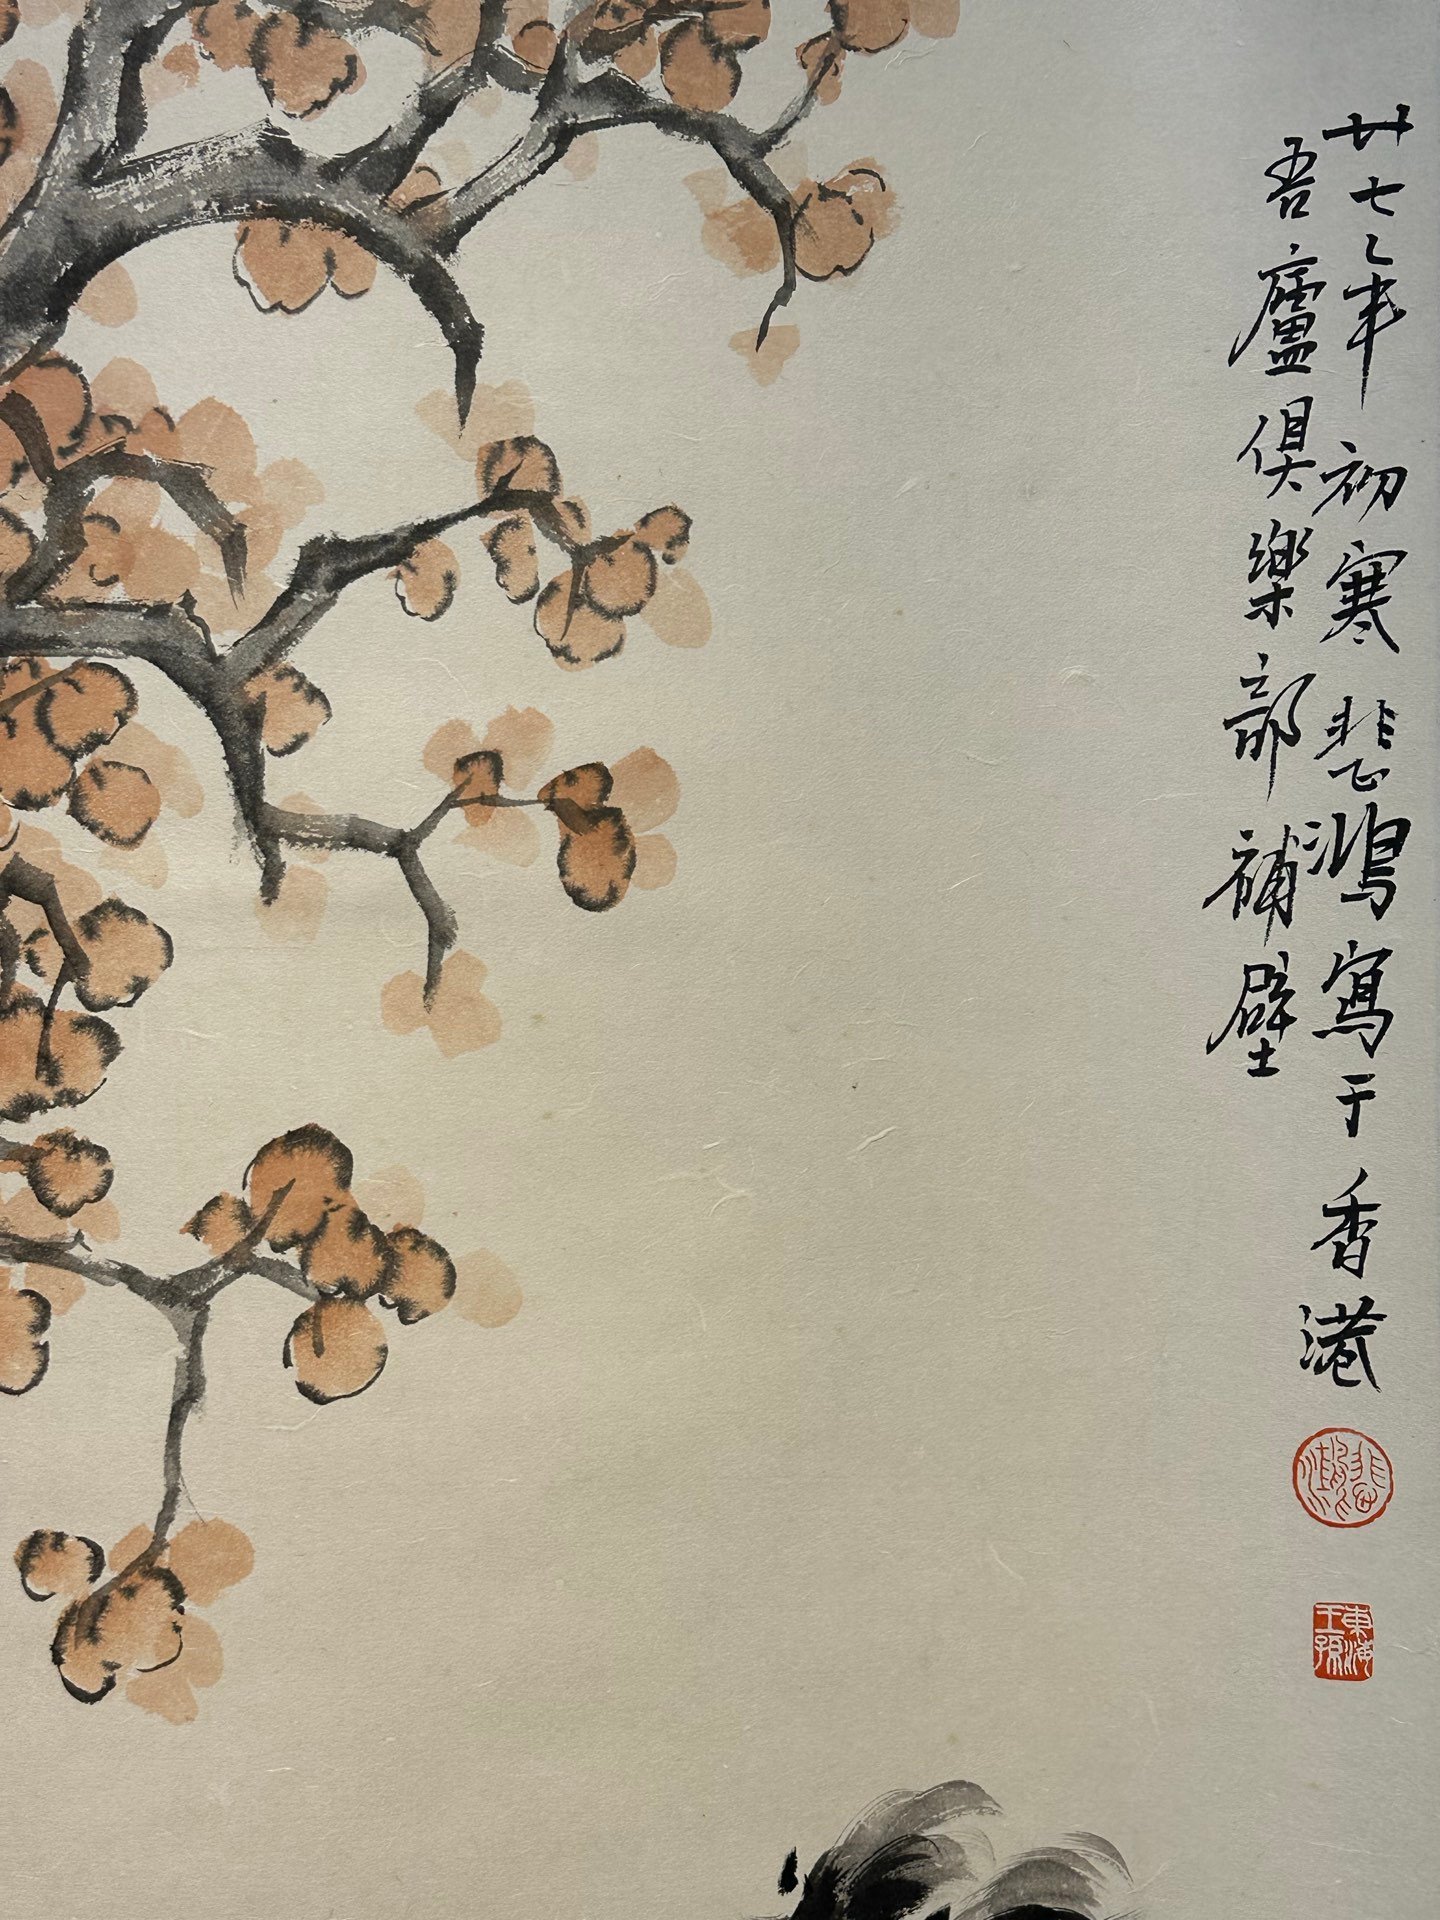 廿七年初寒悲鴻寫于香港
吾廬俱樂部補壁
悲鴻
東海王孫